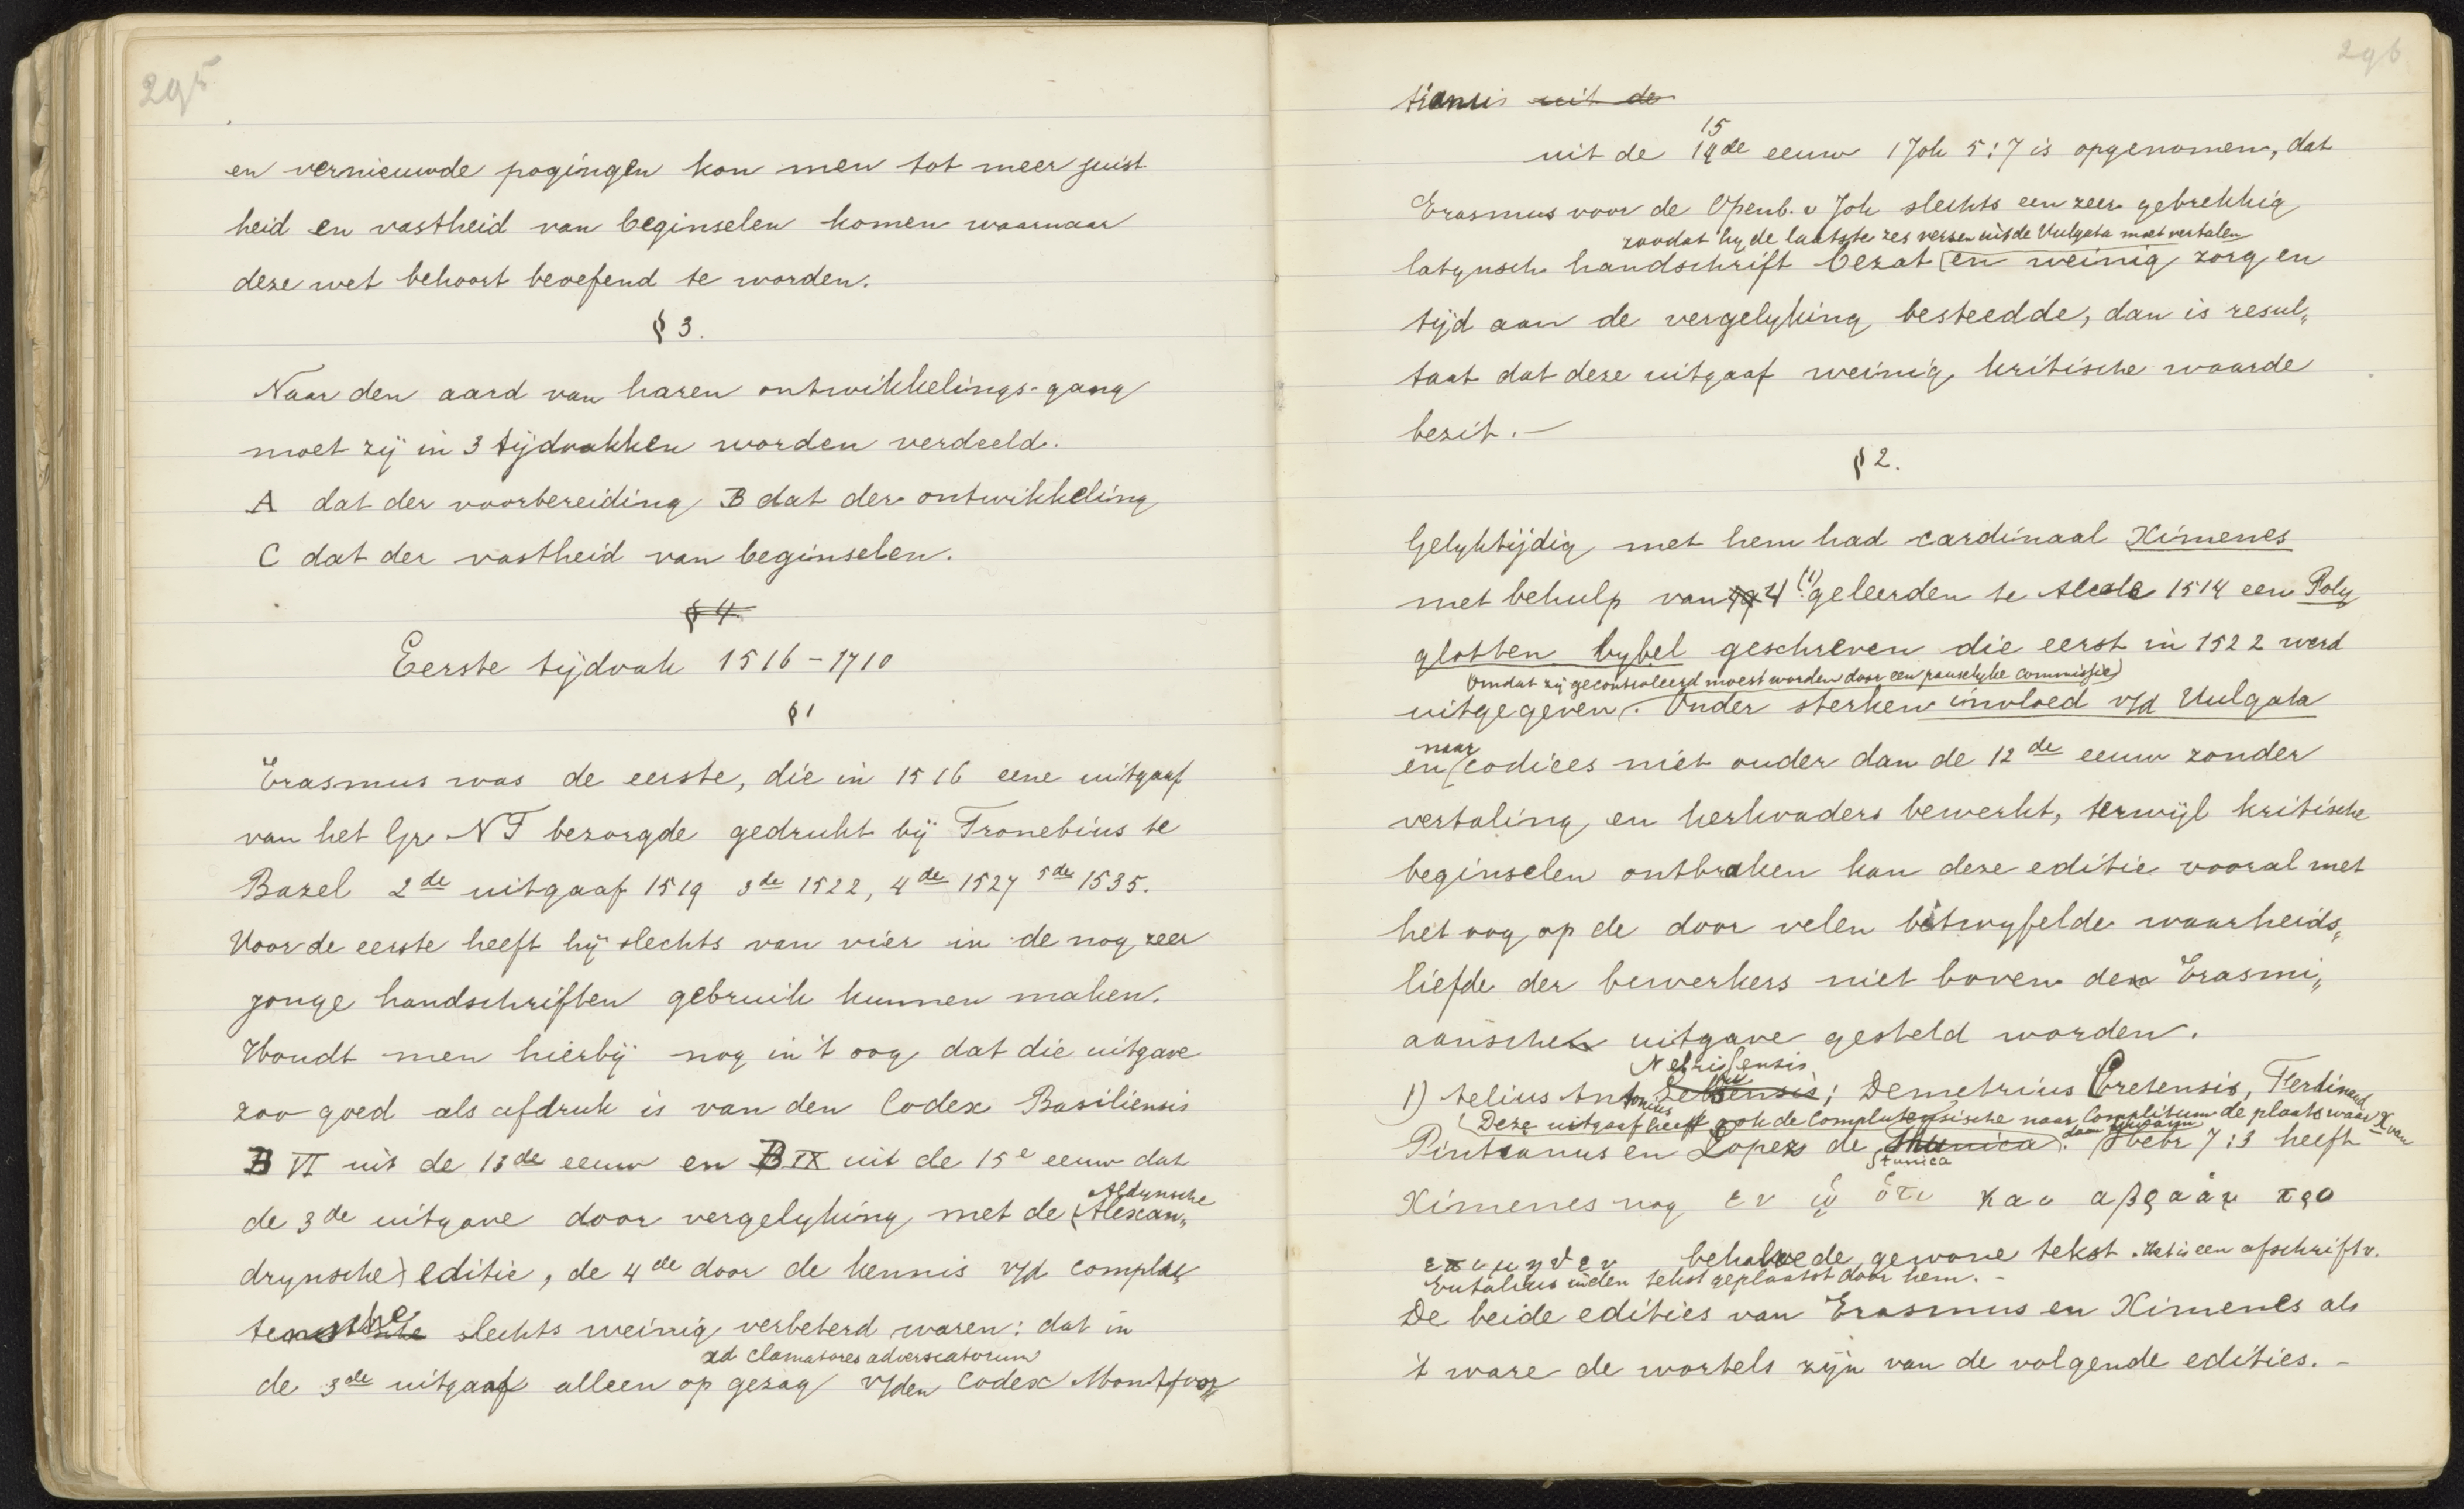 295
en vernieuwde pogingen kon men tot meer juist
heid en vastheid van beginselen komen waarnaar
deze wet behoort beoefend te worden.
§ 3.
Naar den aard van haren ontwikkelings-gang
moet zij in 3 tijdvakken worden verdeeld.
A dat der voorbereiding B dat der ontwikkeling
C dat der vastheid van beginselen.
§ 4.
Eerste tijdvak 1516-1710
§ 1
Erasmus was de eerste, die in 1516 eene uitgaaf
van het Gr. N T bezorgde gedrukt bij Fronebius te
Bazel 2de uitgaaf 1519 3de 1522, 4de 1527 5de 1535.
Voor de eerste heeft hij slechts van vier in de nog zeer
jonge handschriften gebruik kunnen maken.
Houdt men hierbij nog in 't oog dat die uitgave
zoo goed als afdruk is van den Codex Basiliensis
B VI uit de 13de eeuw en B IX uit de 15e eeuw dat
Aldynsche
de 3de uitgave door vergelyking met de (Alexan„
drynsche) editie, de 4de door de kennis v/d complu
tensche slechts weinig verbeterd waren: dat in
ad clamatores adverscatorum
de 3de uitgaaf alleen op gezag v/den Codex Montfor„
296
tiansis uit de
15
uit de 14de eeuw 1 Joh 5:7 is opgenomen, dat
Erasmus voor de Openb. v Joh slechts een zeer gebrekkig
zoodat hy de laatste zes verzen uit de Vulgata moet vertalen
latynsch handschrift bezat en weinig zorg en
tijd aan de vergelyking besteedde, dan is resul„
taat dat deze uitgaaf weinig kritische waarde
bezit. —
§ 2.
Gelyktijdig met hem had cardinaal Ximenes
met behulp van 4 (1) geleerden te Alcala 1514 een Poly
glotten bybel geschreven die eerst in 1522 werd
Omdat zij gecontroleerd moest worden door een pauselyke commissie)
uitgegeven. Onder sterken invloed v/d Vulgata
naar
en codices niet ouder dan de 12de eeuw zonder
vertaling en kerkvaders bewerkt, terwijl kritische
beginselen ontbraken kan deze editie vooral met
het oog op de door velen betwyfelde waarheids„
liefde der bewerkers niet boven den Erasmi„
aanschen uitgave gesteld worden.
Nebrissensis
1) telius Antonius; Demetrius Cretensis, Ferdinand
(Deze uitgaaf heet ook de Complutensische naar Complitum de plaats waar X van
Pintianus en Lopez de Stunica. Hebr 7:3 heeft
Ximenes nog εν ᾧ ὅτι και αβραὰμ προ
ετιμηθεν behalve de gewone tekst. Het is een afschrift v.
Eutalius in den tekst geplaatst door hem. -
De beide edities van Erasmus en Ximenes als
't ware de wortels zijn van de volgende edities. -